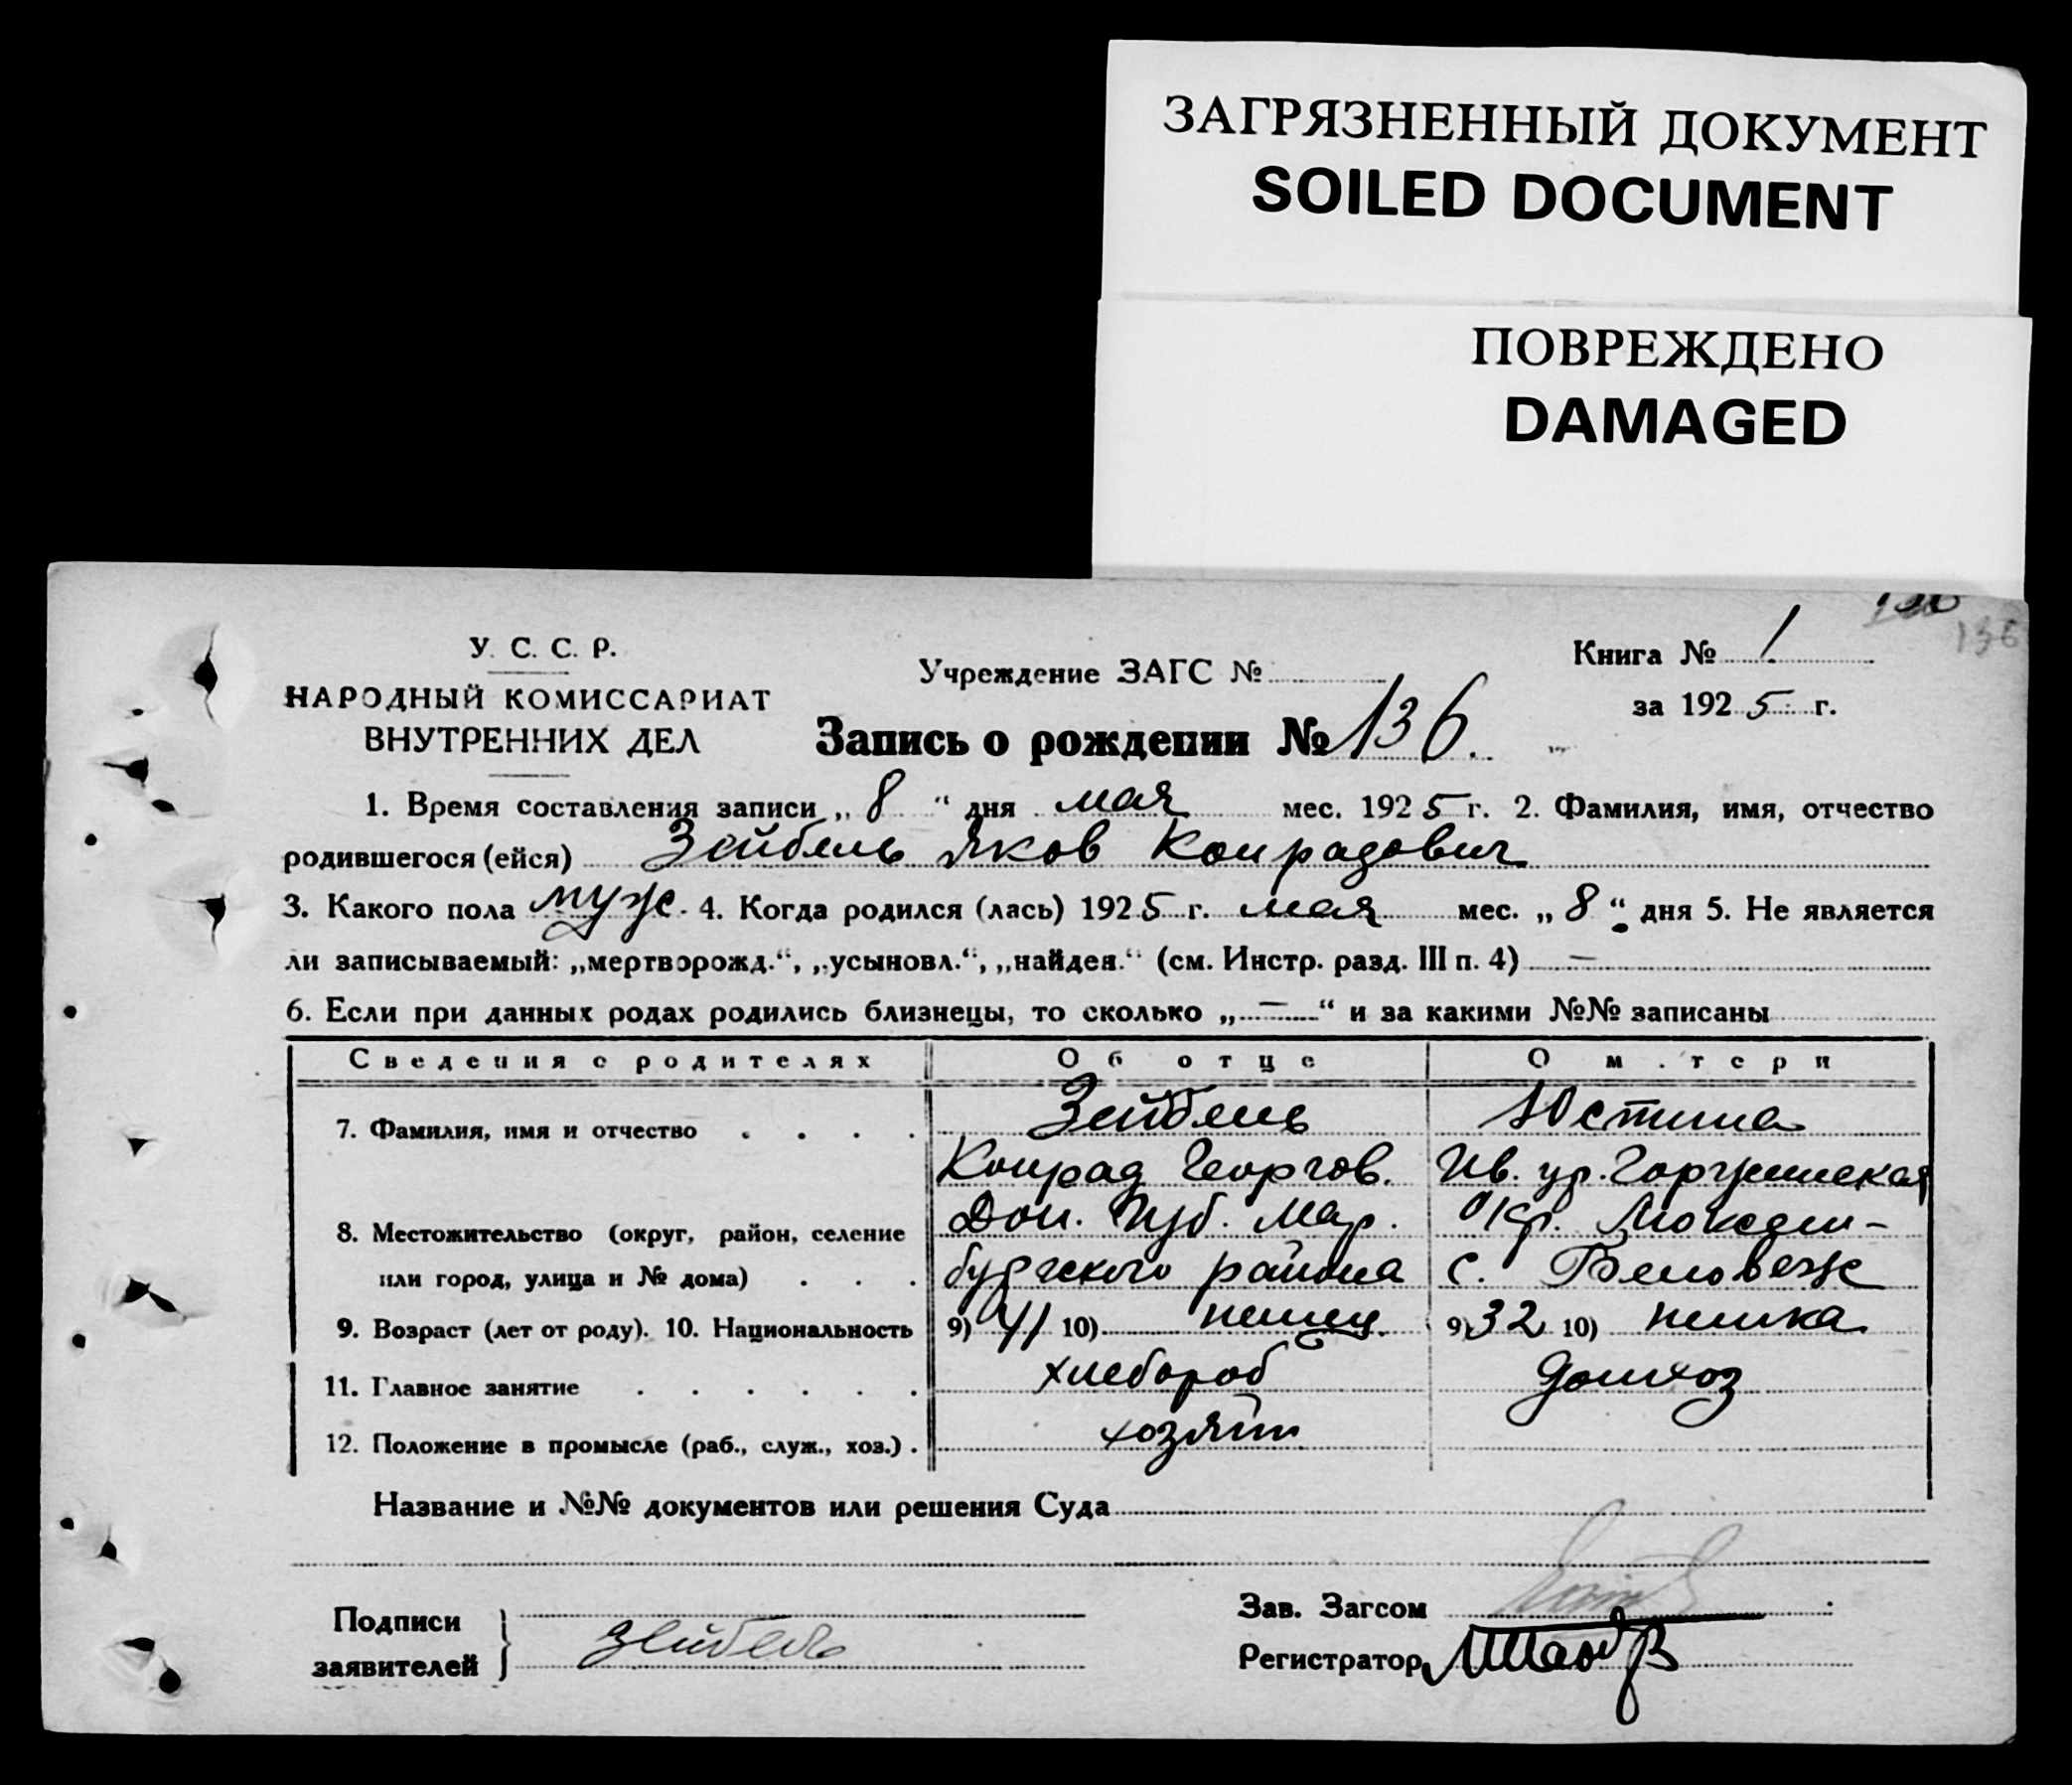 ЗАГРЯЗНЕННЫЙ ДОКУМЕНТ
SOILED DOCUMENT
ПОВРЕЖДЕНО
DAMAGED
136
У. С. С. Р.
НАРОДНЫЙ КОМИССАРИАТ
ВНУТРЕННИХ ДЕЛ
Учреждение ЗАГС №
Книга № 1
за 1925 г.
Запись о рождении № 136.
1. Время составления записи „ 8 “ дня мая мес. 1925 г. 2. Фамилия, имя, отчество
родившегося (ейся) Зейбель Яков Конрадович
3. Какого пола муж. 4. Когда родился (лась) 1925 г. мая мес. „ 8 “ дня 5. Не является
ли записываемый: „мертворожд.“, „усыновл.“, „найден.“ (см. Инстр. разд. III п. 4) —
6. Если при данных родах родились близнецы, то сколько „—“ и за какими №№ записаны
Сведения о родителях Об отце О м.тери
7. Фамилия, имя и отчество . . . . Зейбель Юстина
Конрад Георгов. Ив. ур.
8. Местожительство (округ, район, селение Дон. Губ. Мар. Окр. Люксем-
или город, улица и № дома) . . . бургского района с. Беловеж
9. Возраст (лет от роду). 10. Национальность 9) 41 10) немец. 9) 32 10) немка
11. Главное занятие . . . . . . хлебороб домхоз
12. Положение в промысле (раб., служ., хоз.) . хозяин
Название и №№ документов или решения Суда
Подписи
заявителей } Зейбель
Зав. Загсом
Регистратор